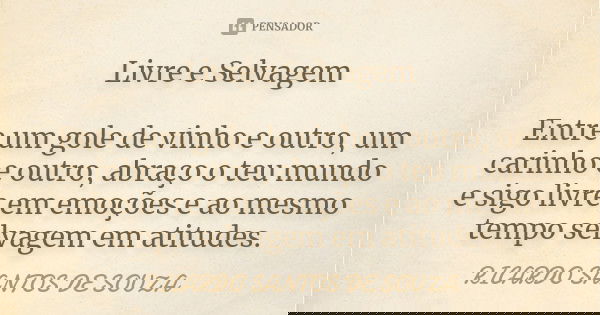 PENSADOR
Livre e Selvagem
Entre um gole de vinho e outro, um
carinho e outro, abraço o teu mundo
e sigo livre em emoções e ao mesmo
tempo selvagem em atitudes.
SANTOS DE SOUZA